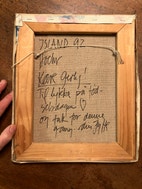 ISLAND 92
Kære Gerly!
Til lykke på fød-
selsdagen ♡
og tak for denne
gang